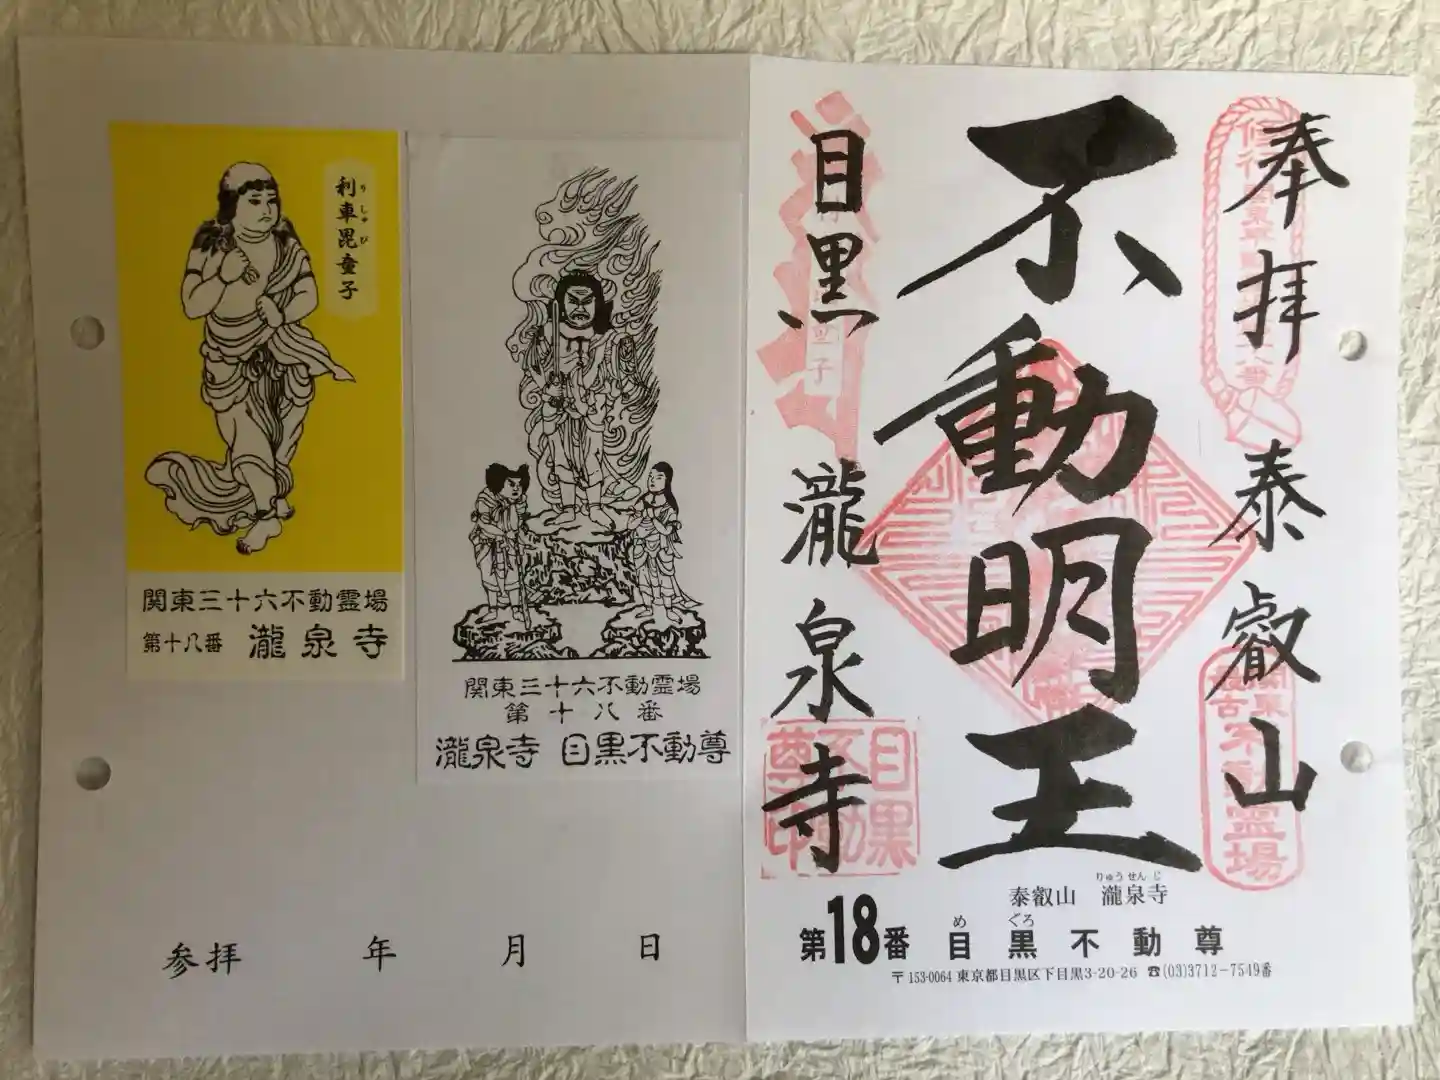 利車毘童子
りしゃび
関東三十六不動霊場
第十八番 瀧泉寺
関東三十六不動霊場
第十八番
瀧泉寺 目黒不動尊
参拝 年 月 日
奉拝 泰叡山
不動明王
目黒 瀧泉寺
関東
不動霊場
目黒
不動
尊印
りゅうせんじ
泰叡山 瀧泉寺
めぐろ
第18番 目黒不動尊
〒153-0064 東京都目黒区下目黒3-20-26 ☎(03)3712-7549番